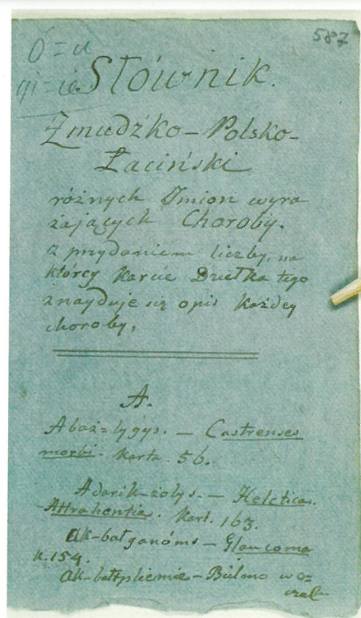 587
Ó=u
Słównik.
Żmudźko-Polsko-
Łaciński
różnych Imion wyra
żających Choroby.
z przydaniem liczby, na
którey karcie Dziełka tego
znayduje się opis każdey
choroby.
A.
Aboz-lygys. – Castrenses
morbi. Karta 56.
– Helctica.
Attrahentia. Kart. 163.
– Glaucoma
k. 154.
– Bielmo w o=
czal